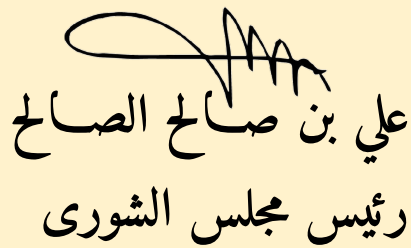 علي بن صالح الصالح
رئيس مجلس الشورى